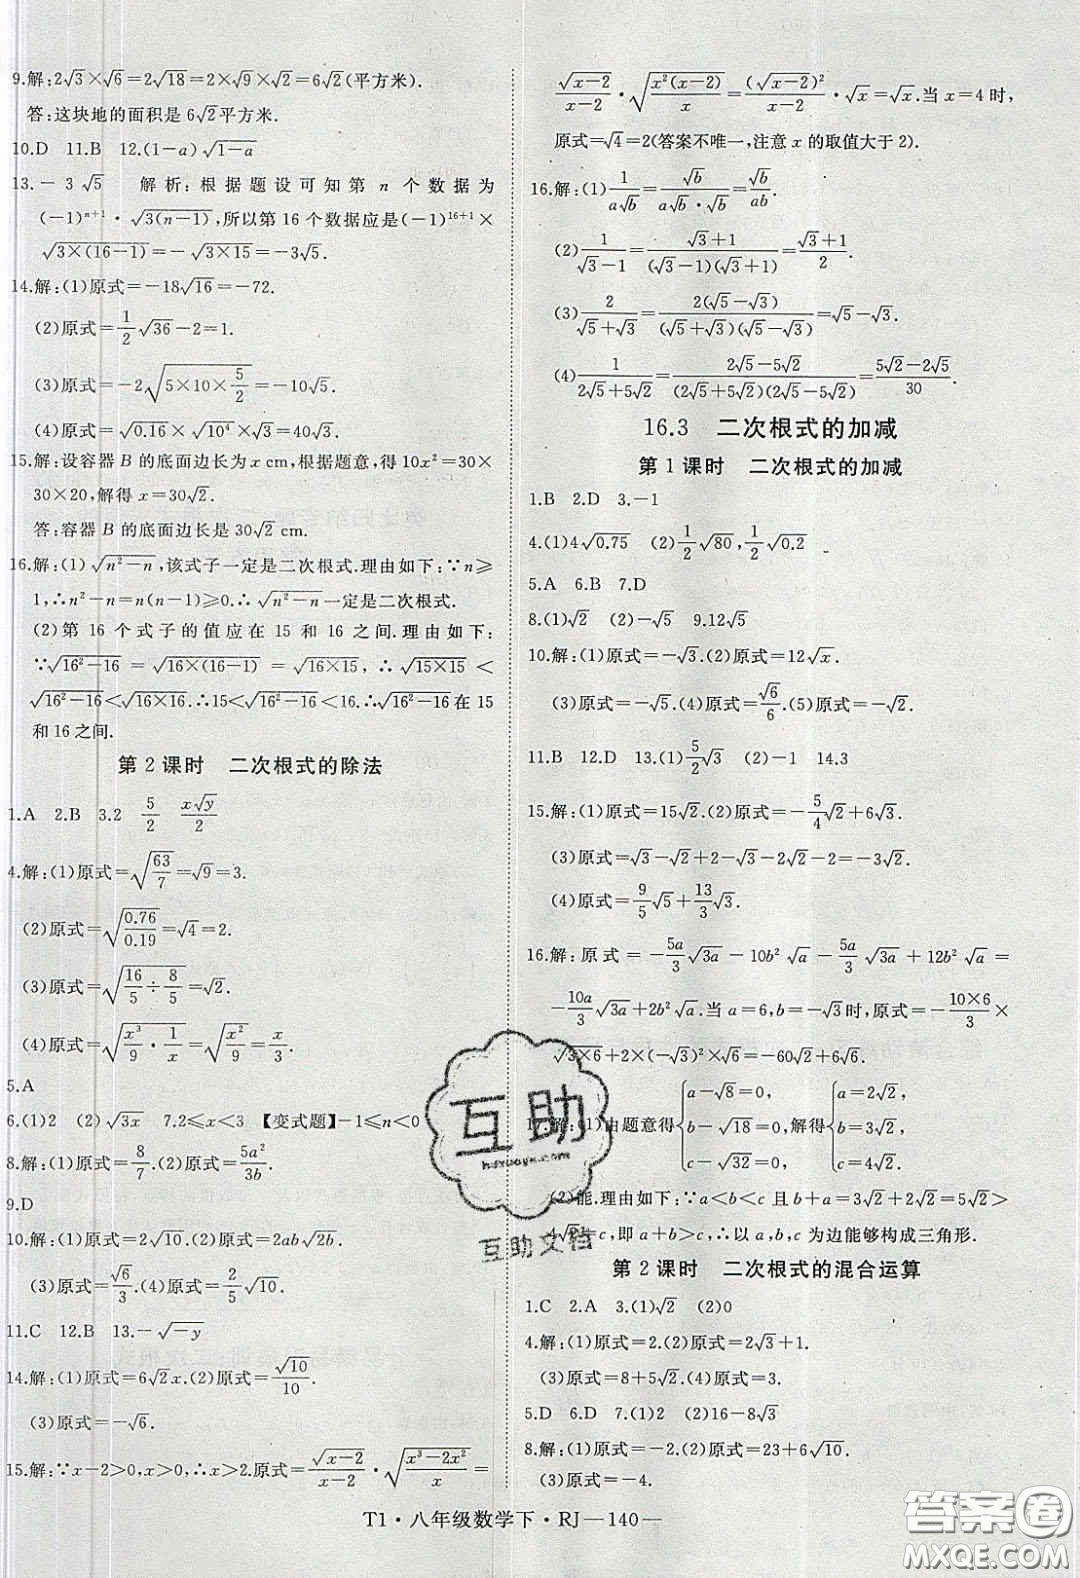 9.解:2√3×√6=2√18=2×√9×√2=6√2(平方米).
答:这块地的面积是6√2平方米.
10.D 11.B 12.(1-a)√(1-a)
13.-3√5 解析:根据题设可知第n个数据为
(-1)^(n+1)·√(3(n-1)),所以第16个数据应是(-1)^(16+1)×
√(3×(16-1))=-√(3×15)=-3√5.
14.解:(1)原式=-18√16=-72.
(2)原式=1/2√36-2=1.
(3)原式=-2√(5×10×5/2)=-10√5.
(4)原式=√0.16×√(10^4)×√3=40√3.
15.解:设容器B的底面边长为x cm,根据题意,得10x²=30×
30×20,解得x=30√2.
答:容器B的底面边长是30√2 cm.
16.解:(1)√(n²-n),该式子一定是二次根式.理由如下:∵n≥
1,∴n²-n=n(n-1)≥0.∴√(n²-n)一定是二次根式.
(2)第16个式子的值应在15和16之间.理由如下:
∵√(16²-16)=√(16×(16-1))=√(16×15),∴√(15×15)<
√(16²-16)<√(16×16).∴15<√(16²-16)<16.∴√(16²-16)在15
和16之间.
第2课时 二次根式的除法
1.A 2.B 3.2 5/2 x√y/2
4.解:(1)原式=√(63/7)=√9=3.
(2)原式=√(0.76/0.19)=√4=2.
(3)原式=√(16/5÷8/5)=√2.
(4)原式=√(x³/9·1/x)=√(x²/9)=x/3.
5.A
6.(1)2 (2)√(3x) 7.2≤x<3 【变式题】-1≤n<0
8.解:(1)原式=8/7.(2)原式=5a²/3b.
9.D
10.解:(1)原式=2√10.(2)原式=2ab√(2b).
(3)原式=√6/3.(4)原式=2/5√10.
11.C 12.B 13.-√(-y)
14.解:(1)原式=6√2x.(2)原式=√10/10.
(3)原式=-√6.
15.解:∵x-2>0,x>0,∴x>2.原式=√(x-2)/(x-2)·√((x³-2x²)/x)=
√(x-2)/(x-2)·√(x²(x-2)/x)=(√(x-2))²/(x-2)·√x=√x.当x=4时,
原式=√4=2(答案不唯一,注意x的取值大于2).
16.解:(1)1/(a√b)=√b/(a√b·√b)=√b/(ab).
(2)1/(√3-1)=(√3+1)/((√3-1)(√3+1))=(√3+1)/2.
(3)2/(√5+√3)=2(√5-√3)/((√5+√3)(√5-√3))=√5-√3.
(4)1/(2√5+5√2)=(2√5-5√2)/((2√5+5√2)(2√5-5√2))=(5√2-2√5)/30.
16.3 二次根式的加减
第1课时 二次根式的加减
1.B 2.D 3.-1
4.(1)4√0.75 (2)1/2√80,1/2√0.2
5.A 6.B 7.D
8.(1)√2 (2)-√5 9.12√5
10.解:(1)原式=-√3.(2)原式=12√x.
(3)原式=-√5.(4)原式=√6/6.(5)原式=4√3.
11.B 12.D 13.(1)5/2√3 (2)-1 14.2
15.解:(1)原式=15√2.(2)原式=-5/4√2+6√3.
(3)原式=√3-√2+2-√3-2√2-2=-3√2.
(4)原式=9/5√5+13/3√3.
16.解:原式=-5a/3√(3a)-10b²√a-5a/3√(3a)+12b²√a=
-10a/3√(3a)+2b²√a.当a=6,b=-√3时,原式=-10×6/3×
√(3×6)+2×(-√3)²×√6=-60√2+6√6.
17.解:(1)由题意得{a-√8=0,b-√18=0,c-√32=0,解得{a=2√2,b=3√2,c=4√2.
(2)能.理由如下:∵a<b<c且a+b=3√2+2√2=5√2>
4√2=c,即a+b>c,∴以a,b,c为边能够构成三角形.
第2课时 二次根式的混合运算
1.C 2.A 3.(1)√2 (2)0
4.解:(1)原式=2.(2)原式=2√3+1.
(3)原式=8+5√3.(4)原式=3.
5.D 6.D 7.(1)2 (2)16-8√3
8.解:(1)原式=-2.(2)原式=23+6√10.
(3)原式=-4.
T1·八年级数学下·RJ—140—
互助
hdzuoye.com
互助文档
答案圈
MXQE.COM